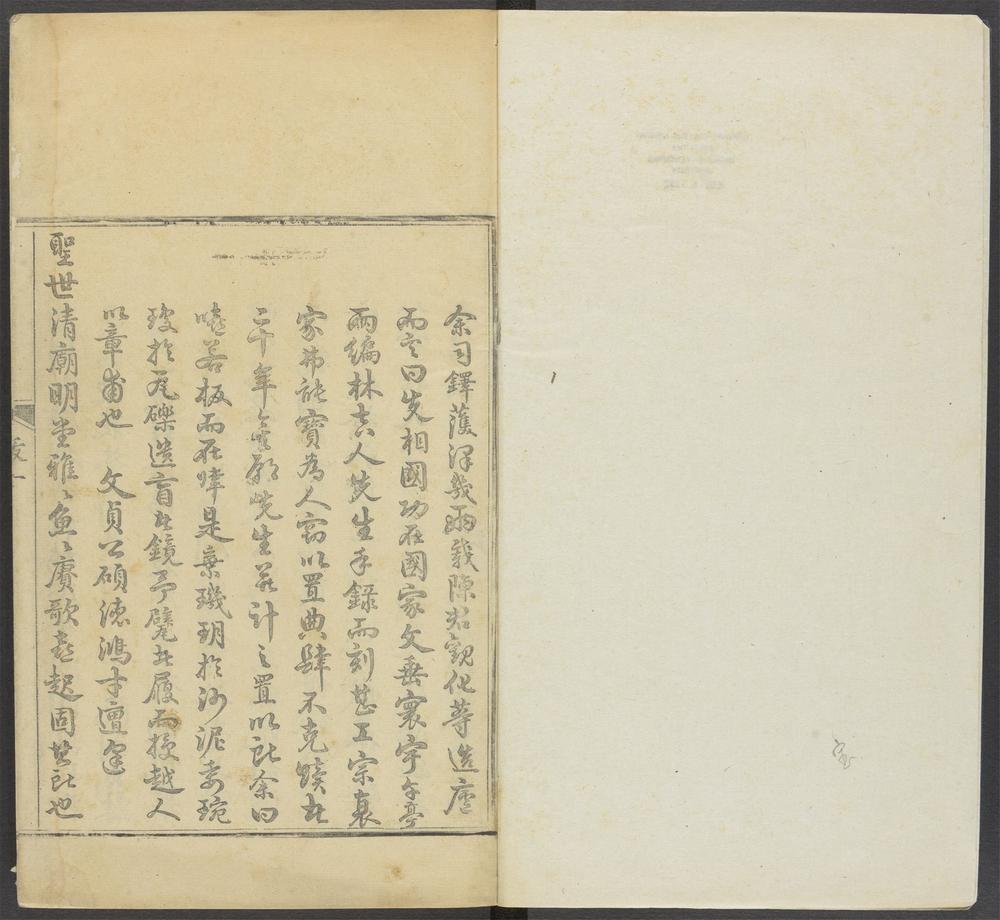 余司鐸濩澤幾兩載陳君觀化等造廬
而言曰先相國功在國家文垂寰宇午亭
兩編林吉人先生手錄而刻甚工宗衰
家弗能寶為人竊以置典肆不克贖者
二十年矣願先生計之置以余曰
嘻若板而在是棄璣玥於沙泥委琬
琰於瓦礫遺盲者鏡予躄者履而授越人
以章甫也　文貞公碩德鴻才亶逢
聖世清廟明堂雅〻魚〻賡歌喜起固其所也
跋一